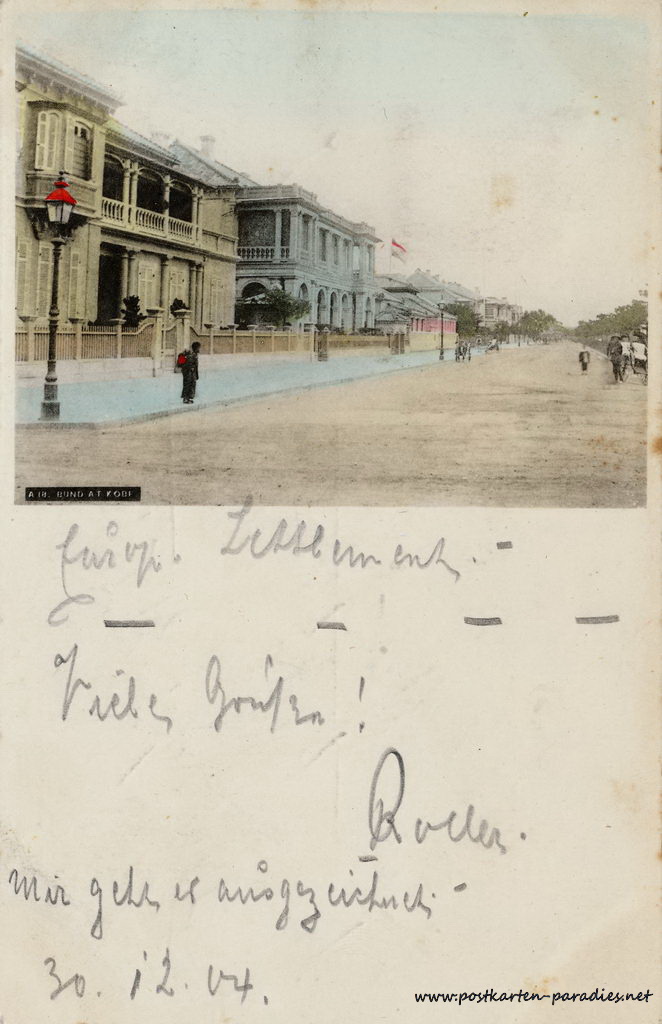 A 18. BUND AT KOBE
Europ. Settlement. -
Viele Grüße!
Roller.
Mir geht es ausgezeichnet. -
30. 12. 04.
www.postkarten-paradies.net